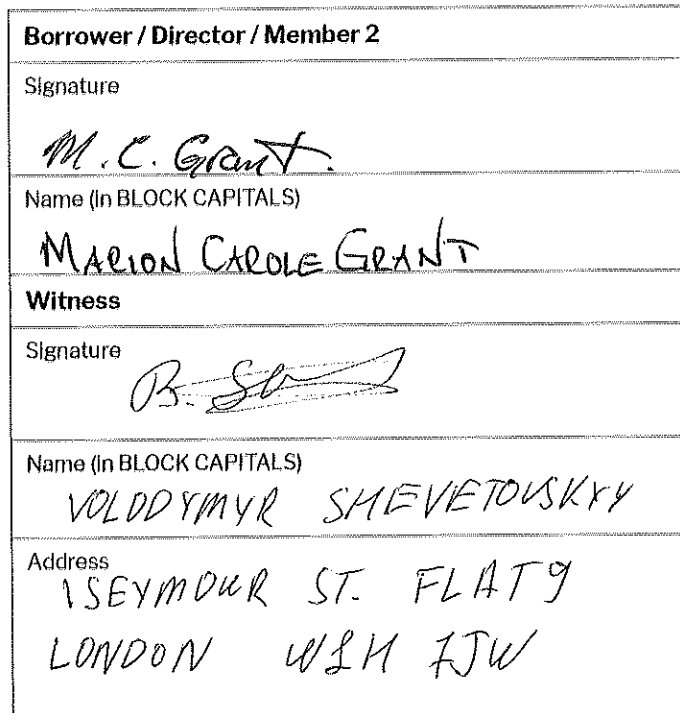 Borrower / Director / Member 2
Signature
M. C. Grant.
Name (in BLOCK CAPITALS)
MARION CAROLE GRANT
Witness
Signature
B. 
Name (in BLOCK CAPITALS)
VOLODYMYR SHEVETOVSKYY
Address
1 SEYMOUR ST. FLAT 9
LONDON W1H 7JW